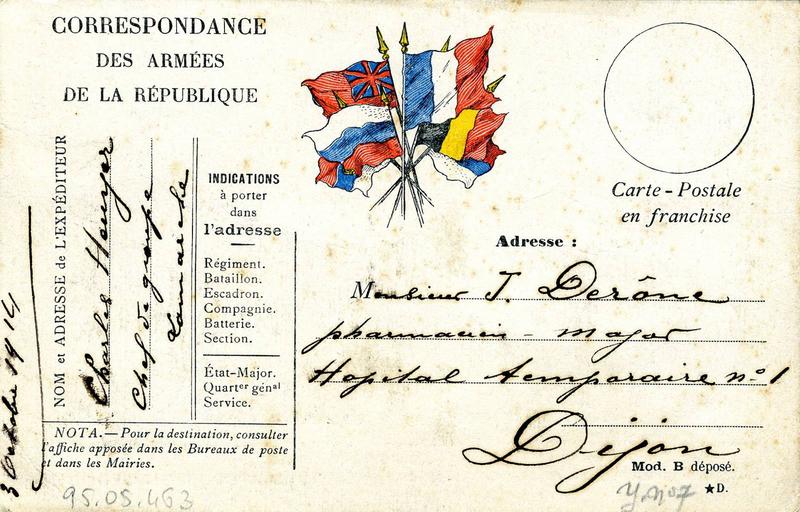 CORRESPONDANCE
DES ARMÉES
DE LA RÉPUBLIQUE
Carte - Postale
en franchise
NOM et ADRESSE de L'EXPÉDITEUR
Charles
Chef de groupe
Lamarche
3 Octobre 1914
INDICATIONS
à porter
dans
l'adresse
Régiment.
Bataillon.
Escadron.
Compagnie.
Batterie.
Section.
État-Major.
Quartᵉʳ génᵃˡ
Service.
NOTA. — Pour la destination, consulter
l'affiche apposée dans les Bureaux de poste
et dans les Mairies.
Adresse :
Monsieur J. Derône
pharmacien - major
Hopital temporaire nº 1
Dijon
Mod. B déposé.
★D.
95.05.463